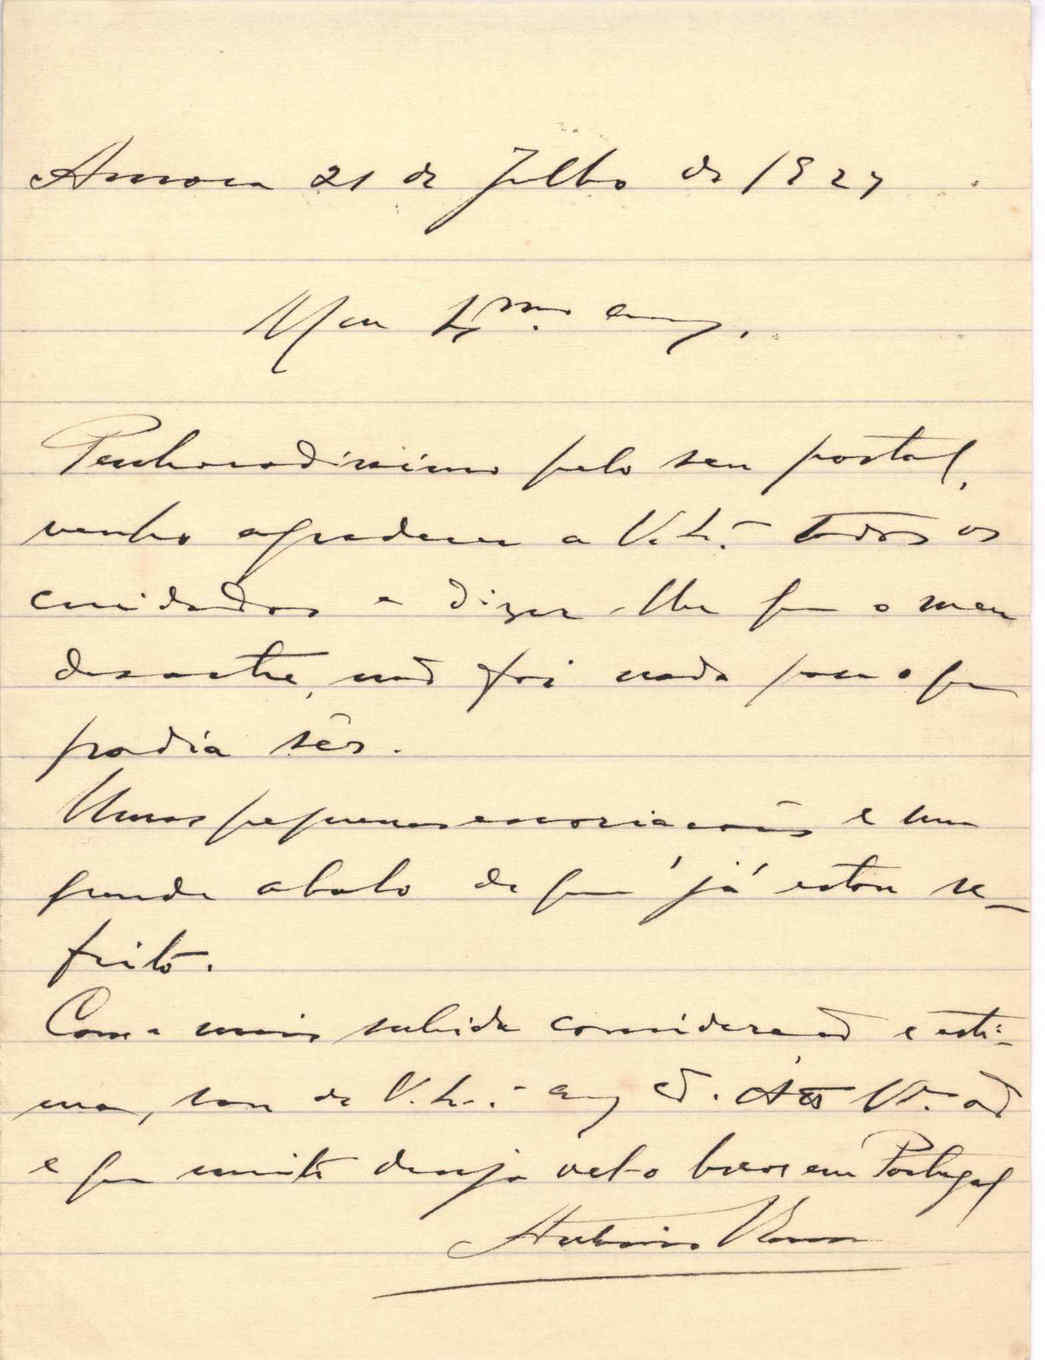 21 de Julho de 1927
Meu Exmo. amº.
Penhoradissimo pelo seu postal,
venho agradecer a V. Exª. todos os
cuidados e dizer-lhe que o meu
desastre, não foi nada para o que
podia sêr.
Umas pequenas escoriacões e um
grande abalo de que já estou re-
feito.
Com a mais subida consideração e esti-
ma, sou de V. Exª. amº Attº Vor.
e que muito deseja vel-o breve em Portugal
Antonio